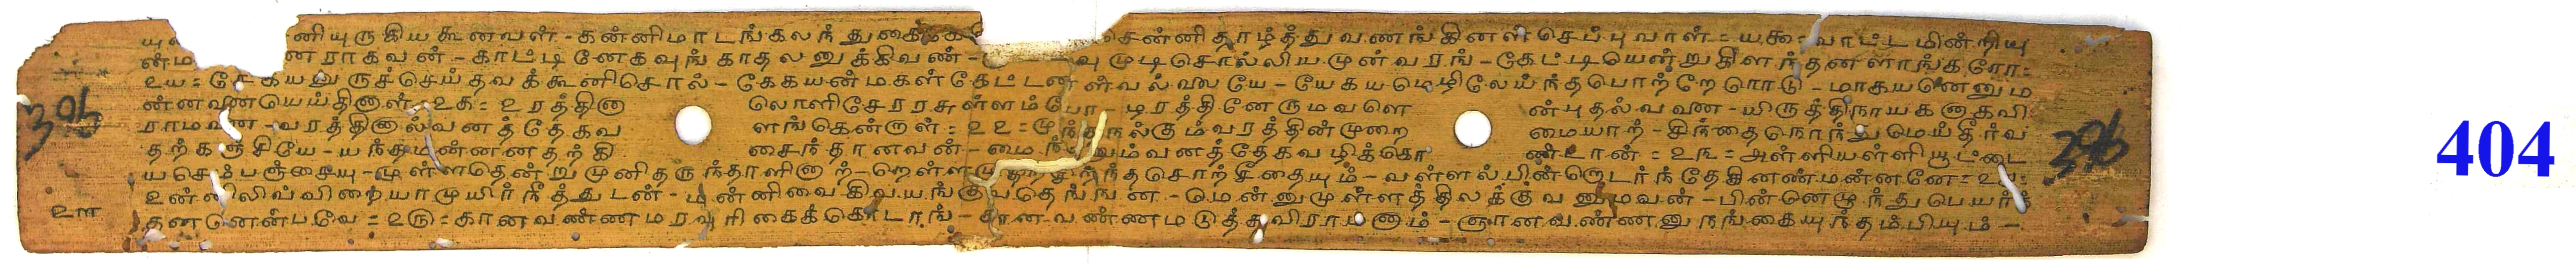 னியுருகிய கூனவள் - கன்னிமாடங்கலந் துகை சென்னிதாழ்த்துவணங்கினள்செப்புவாள் = யகூ = வாட்டமின்றியு
ன்ம ன ராகவன் - காட்டினேகவுங் காதலனுக்கிவண் - வுமுடிசொல்லியமுன்வரங் - கேட்டியென்றுகிளந்தனளாங்கரோ =
உய = கேகயனுருச்செய்தவக்கூனிசொல் - கேகயன்மகள்கேட்டன ள்வல்லையே - யேகயமெழிலேய்ந்தபொற்றேரொடு - மாகயனெனும
ன்னவனையெய்தினாள் - உக = உரத்தினா லொளிசேரரசுள்ளம்போ - டிரத்தினேருமவளெ ன்புதல்வவன - யிருத்திநாயகனாகவி
ராமவன - வரத்தினால்வனத்தேகவ ளங்கென்றாள் = உஉ = முந்துநல்கும்வரத்தின்முறை மையாற் - சிந்தைநொந்துமெய்தீர்வ
தற்கஞ்சியே - யந்தமன்னனதற்கி சைந்தானவன் - மைந் வும்வனத்தேகவழிக்கொ ண்டான் = உங = அள்ளியள்ளியூட்டை
யசெம்பஞ்சையு - முள்ளதென்றுமுனிதருந்தாளினாற் - றெள்ளமு சிறந்தசொற்சீதையும் - வள்ளல்பின்றொடர்ந்தேகினண்மன்னனே = உ
உன்ன லிவ்விறையாமுயிர்நீத்துடன் - மன்னிவைகிவயங்குவதெங்ஙன - மென்னுமுள்ளத்திலக்குவனுமவன் - பின்னெழுந்துபெயர்
தனனென்பவே = உரு = கானவண்ணமரவுரிகைக்கொடாங் - கான வண்ணமடுத்துவிராமனாம் - ஞானவண்ணனுநங்கையுந்தம்பியும் -
உா
306
396
404